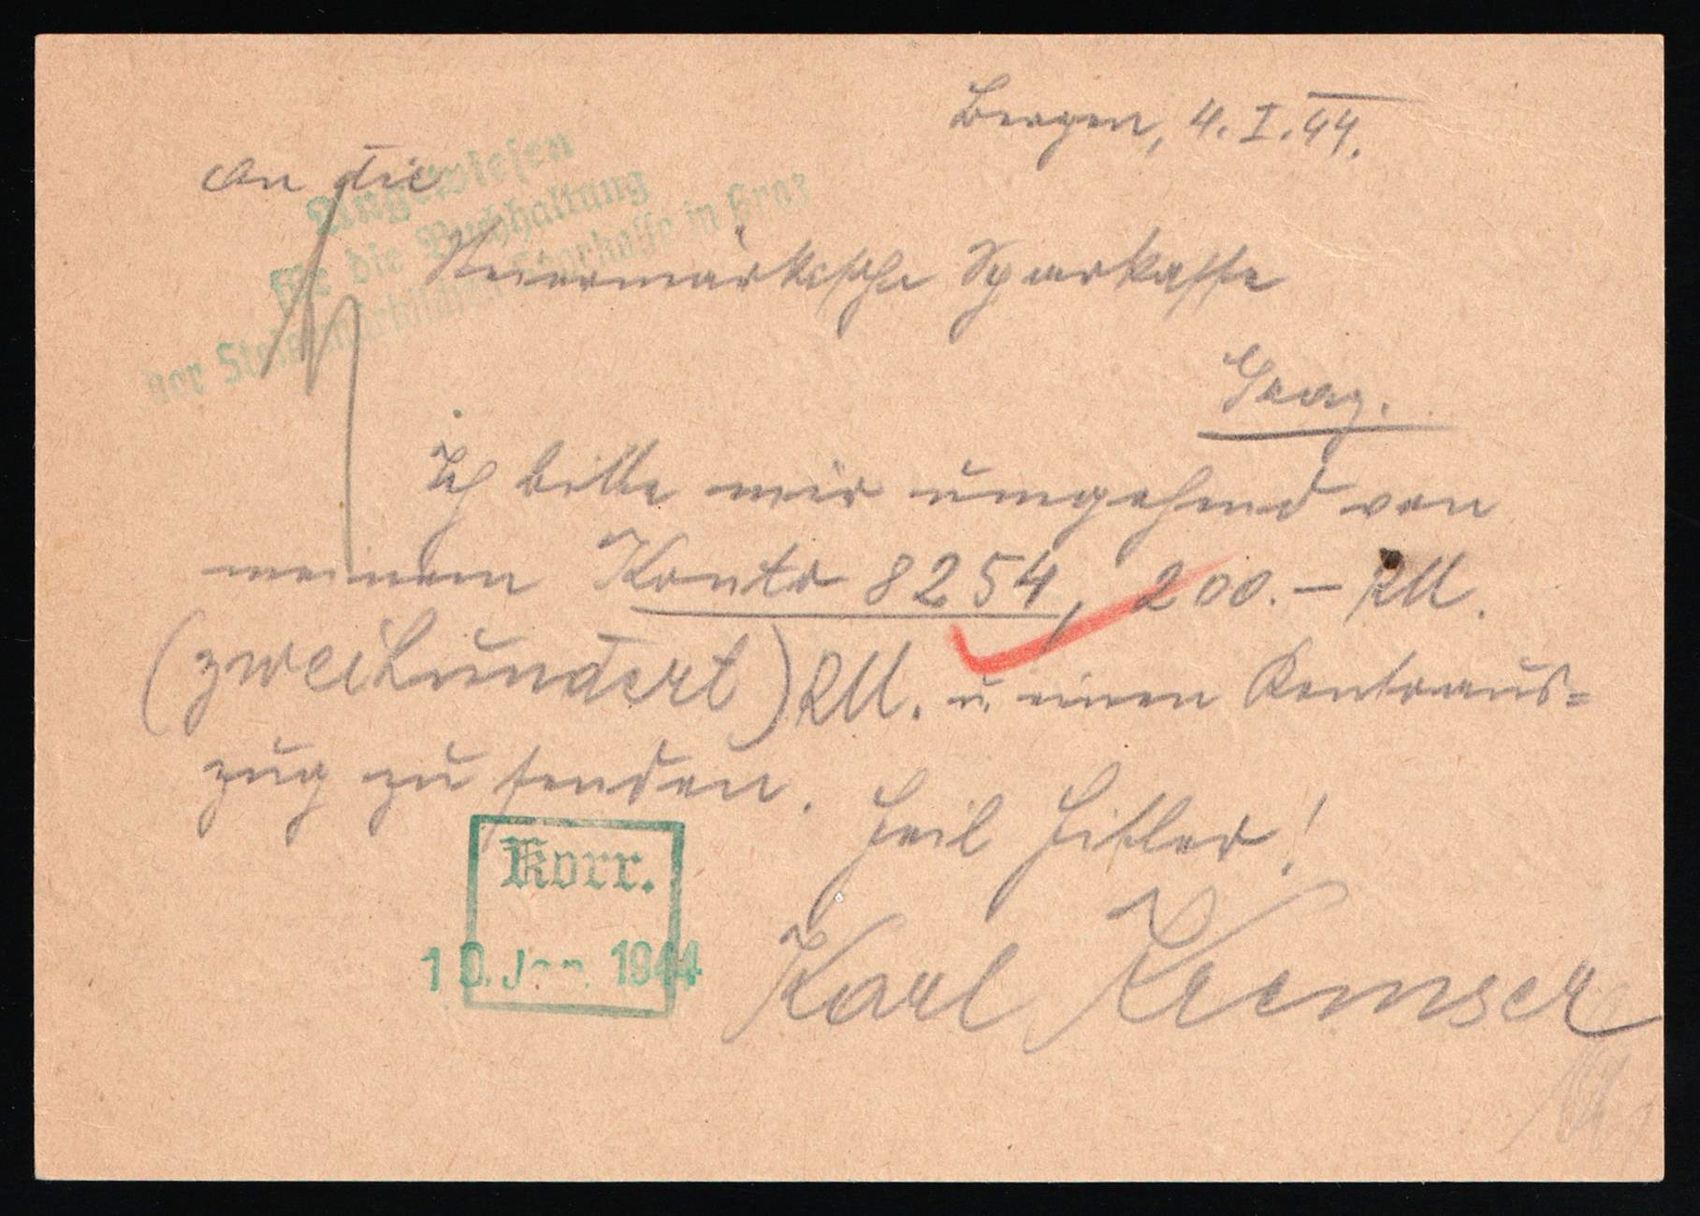 Bergen, 4. I. 44.
An die
Angewiesen
für die Buchhaltung
der Steiermärkischen Sparkasse in Graz
Steiermärkische Sparkasse
Graz.
Ich bitte mir umgehend von
meinem Konto 8254, 200.– RM.
(zweihundert) RM. u. einen Kontoaus=
zug zu senden.
Heil Hitler!
Korr.
10. Jan. 1944
Karl Kremser